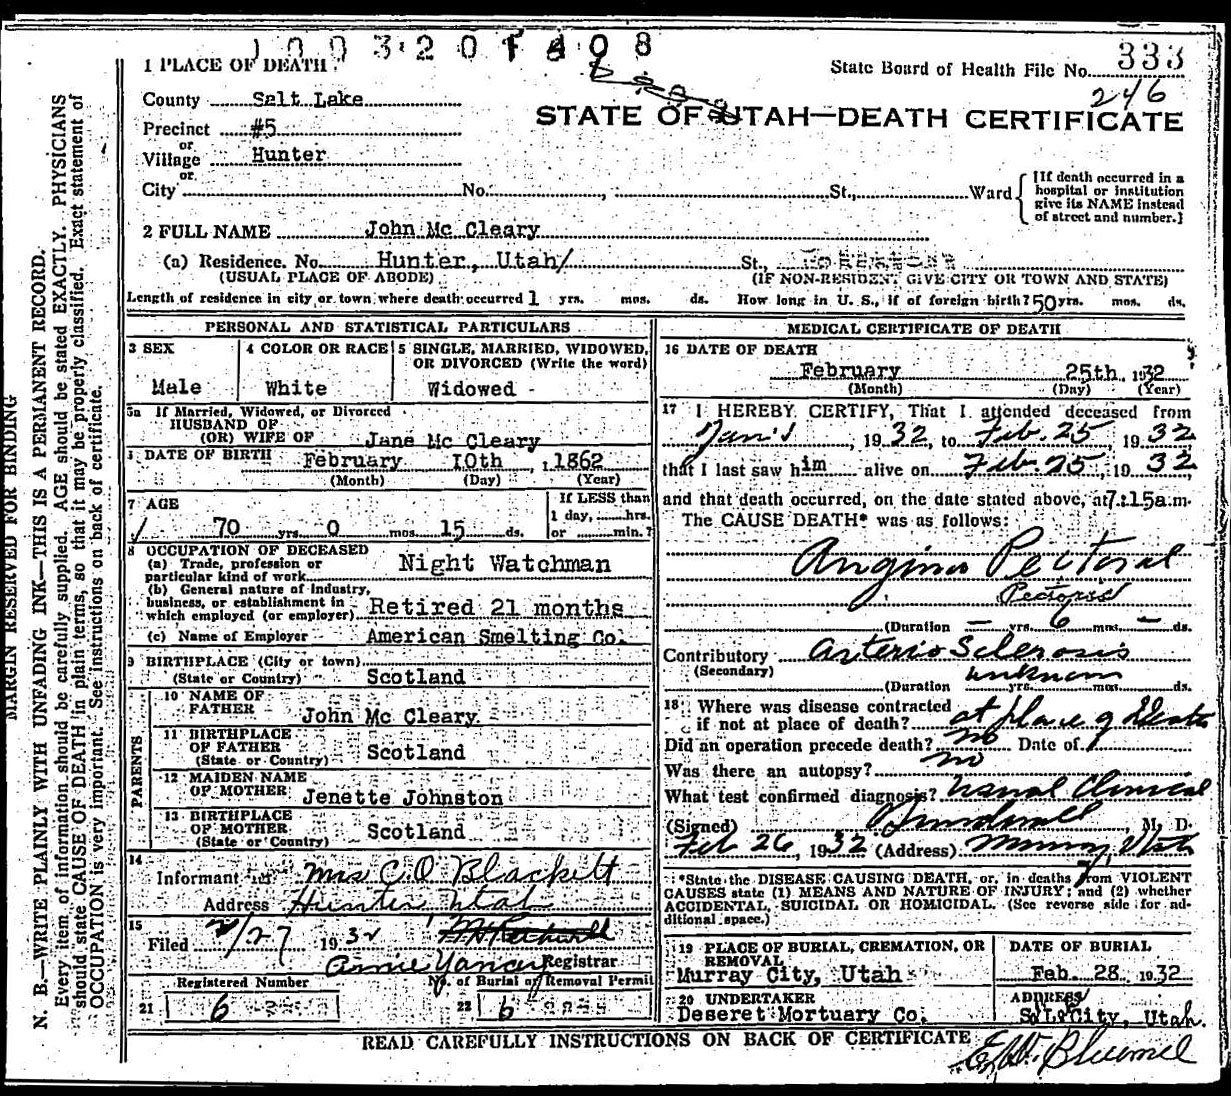 1003201408
333
State Board of Health File No.
246
1 PLACE OF DEATH
STATE OF UTAH—DEATH CERTIFICATE
County Salt Lake
Precinct #5
or
Village Hunter
or
City No. , St., Ward
[If death occurred in a
hospital or institution
give its NAME instead
of street and number.]
2 FULL NAME John Mc Cleary
(a) Residence. No. Hunter, Utah/ St.,
(USUAL PLACE OF ABODE) (IF NON-RESIDENT GIVE CITY OR TOWN AND STATE)
Length of residence in city or town where death occurred 1 yrs. mos. ds. How long in U. S., if of foreign birth? 50 yrs. mos. ds.
PERSONAL AND STATISTICAL PARTICULARS
3 SEX
Male
4 COLOR OR RACE
White
5 SINGLE, MARRIED, WIDOWED,
OR DIVORCED (Write the word)
Widowed
5a If Married, Widowed, or Divorced
HUSBAND OF
(OR) WIFE OF Jane Mc Cleary
DATE OF BIRTH February 10th, 1862
(Month) (Day) (Year)
7 AGE
70 yrs. 0 mos. 15 ds.
If LESS than
1 day, hrs.
or min.?
8 OCCUPATION OF DECEASED
(a) Trade, profession or
particular kind of work Night Watchman
(b) General nature of industry,
business, or establishment in
which employed (or employer) Retired 21 months
(c) Name of Employer American Smelting Co.
9 BIRTHPLACE (City or town)
(State or Country) Scotland
PARENTS
10 NAME OF
FATHER John Mc Cleary
11 BIRTHPLACE
OF FATHER
(State or Country) Scotland
12 MAIDEN NAME
OF MOTHER Jenette Johnston
13 BIRTHPLACE
OF MOTHER
(State or Country) Scotland
14
Informant Mrs C O Blackett
Address Hunter Utah
15
Filed 2/27 1932
Annie Yancey Registrar
Registered Number
No. of Burial or Removal Permit
21 6
22 6
MEDICAL CERTIFICATE OF DEATH
16 DATE OF DEATH
February 25th 1932
(Month) (Day) (Year)
17 I HEREBY CERTIFY, That I attended deceased from
Jan 1, 1932, to Feb. 25, 1932
that I last saw him alive on Feb. 25, 1932,
and that death occurred, on the date stated above, at 7:15a.m.
The CAUSE DEATH* was as follows:
Angina Pectoral
Pectoris
(Duration — yrs. 6 mos. — ds.
Contributory Arterio Sclerosis
(Secondary)
unknown
(Duration yrs. mos. ds.
18 Where was disease contracted
if not at place of death? at place of Death
Did an operation precede death? no Date of
Was there an autopsy? no
What test confirmed diagnosis? Usual Clinical
(Signed) M. D.
Feb 26, 1932 (Address) Murray, Utah
*State the DISEASE CAUSING DEATH, or, in deaths from VIOLENT
CAUSES state (1) MEANS AND NATURE OF INJURY; and (2) whether
ACCIDENTAL, SUICIDAL OR HOMICIDAL. (See reverse side for ad-
ditional space.)
19 PLACE OF BURIAL, CREMATION, OR
REMOVAL
Murray City, Utah
DATE OF BURIAL
Feb. 28, 1932
20 UNDERTAKER
Deseret Mortuary Co.
ADDRESS
S.L. City, Utah.
READ CAREFULLY INSTRUCTIONS ON BACK OF CERTIFICATE
MARGIN RESERVED FOR BINDING
N. B.—WRITE PLAINLY WITH UNFADING INK—THIS IS A PERMANENT RECORD.
Every item of information should be carefully supplied. AGE should be stated EXACTLY. PHYSICIANS
should state CAUSE OF DEATH in plain terms, so that it may be properly classified. Exact statement of
OCCUPATION is very important. See instructions on back of certificate.